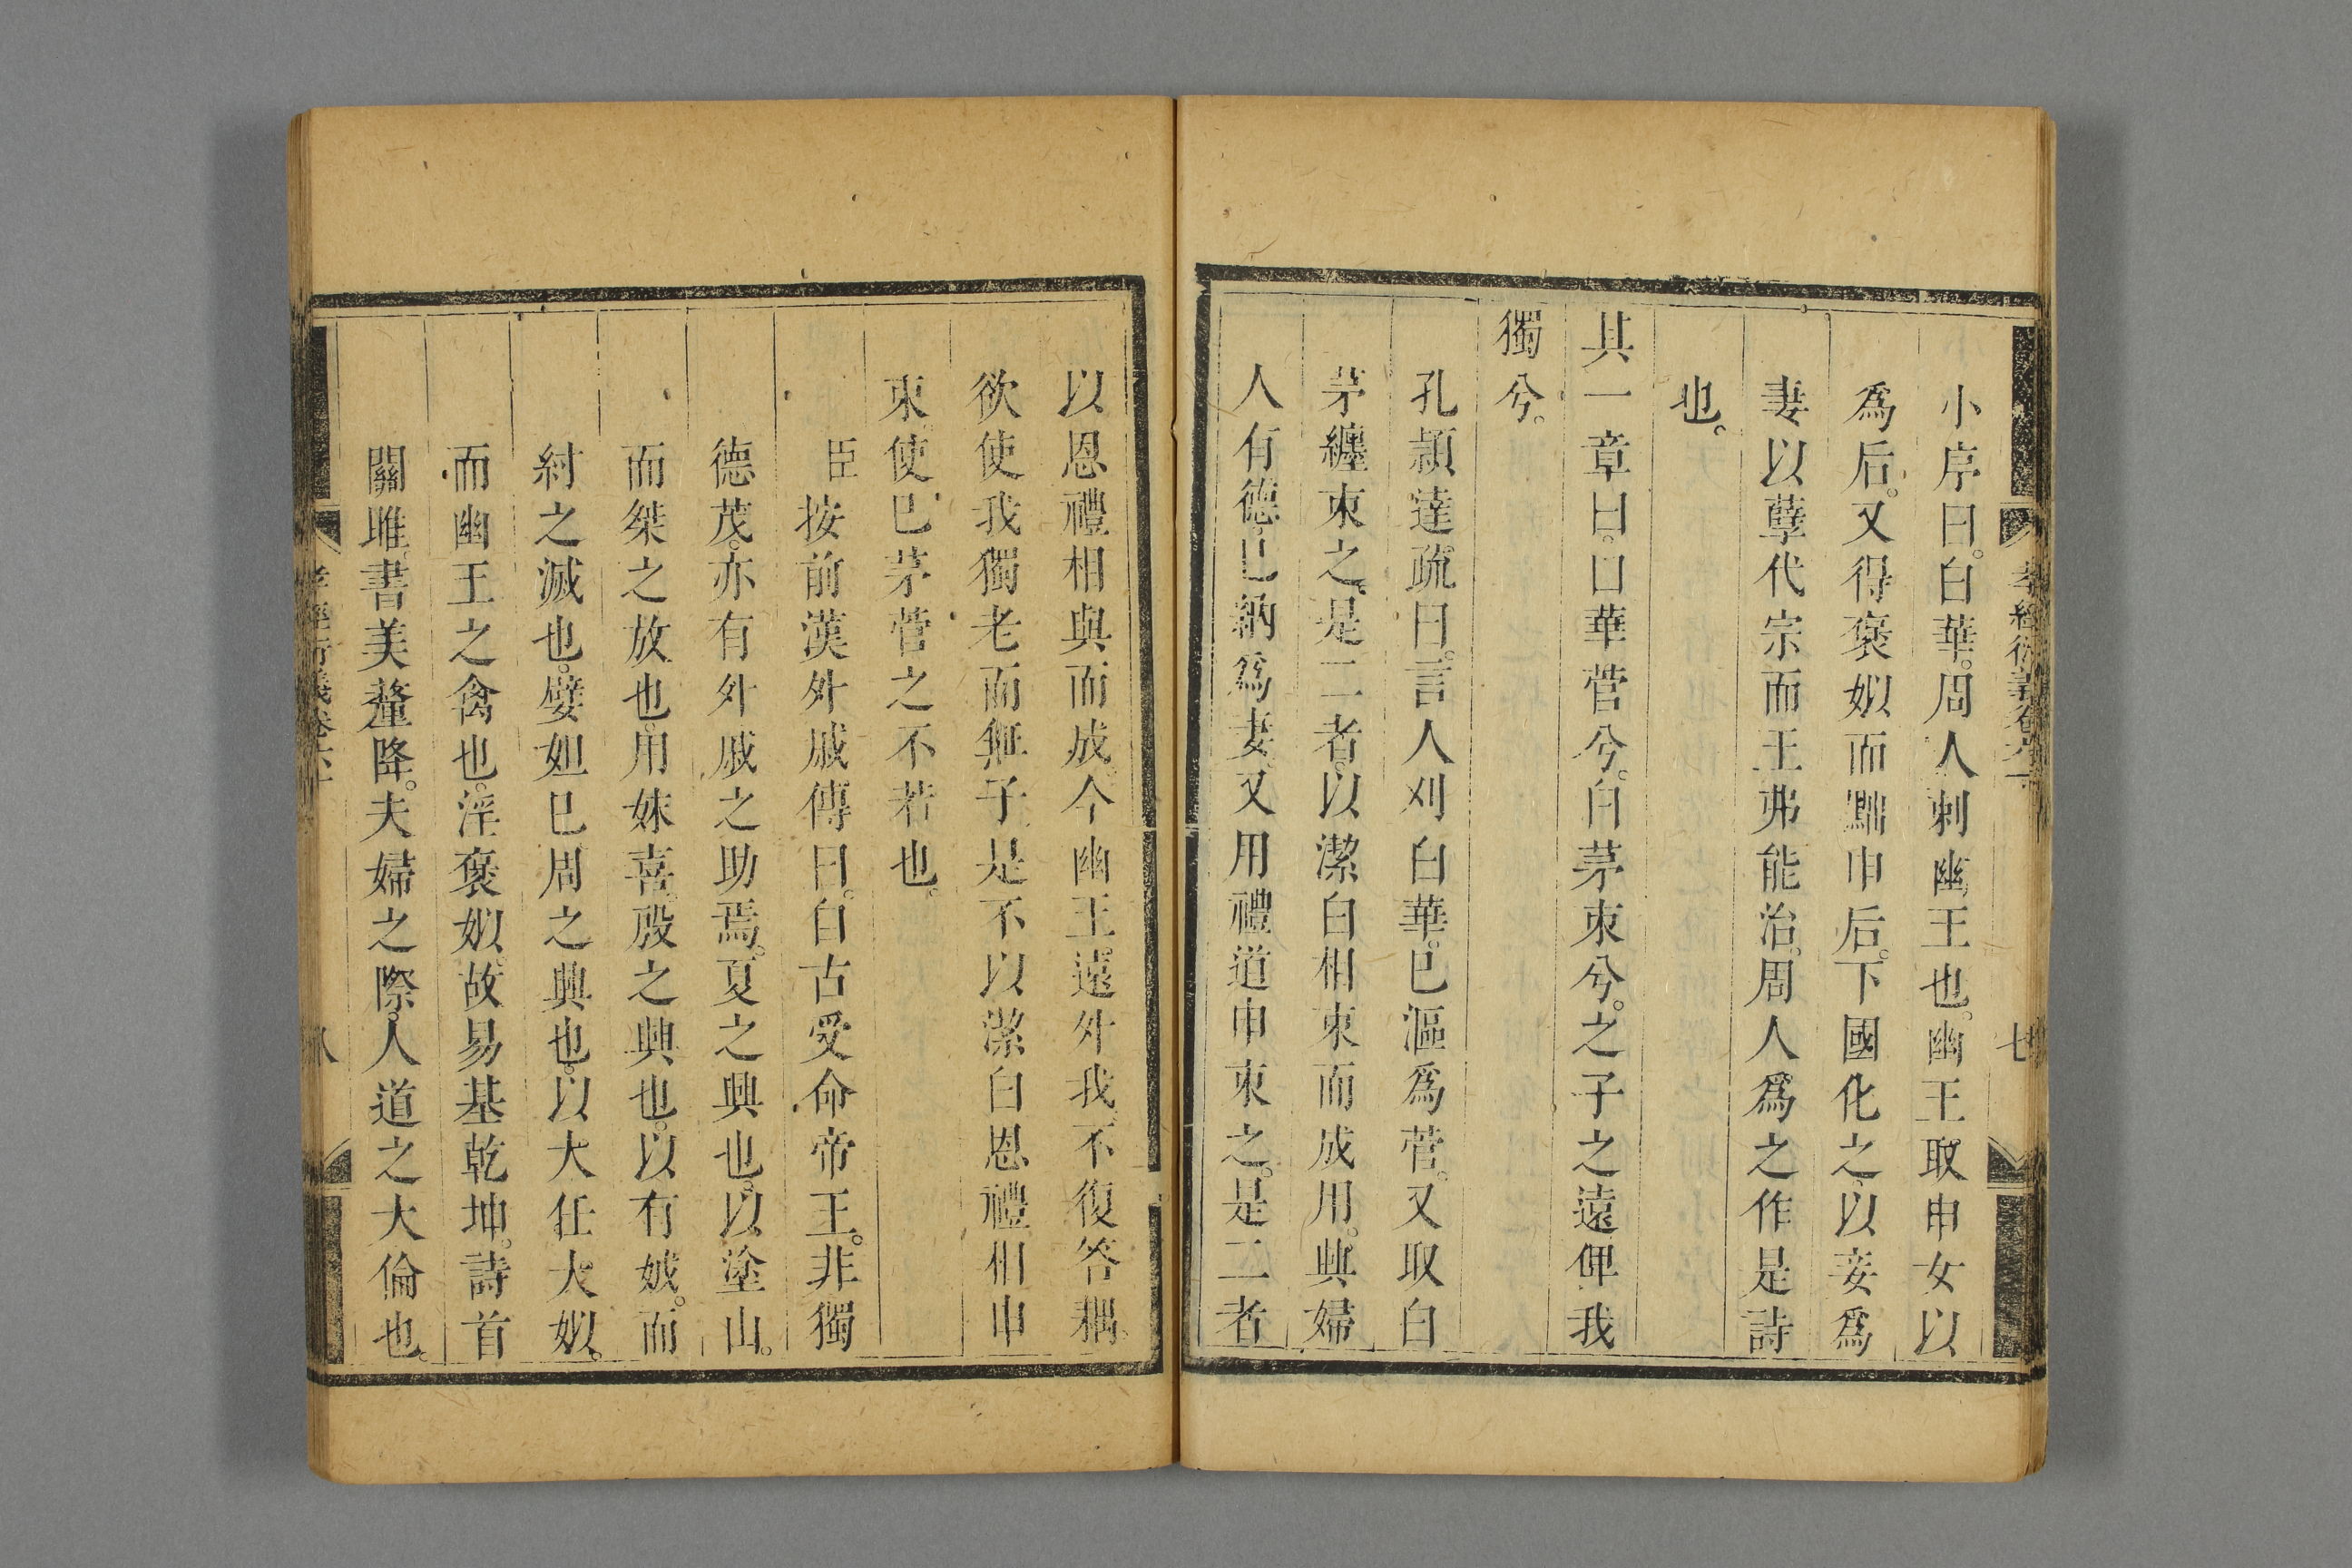 小序曰。白華。周人刺幽王也。幽王取申女以
爲后。又得褒姒而黜申后。下國化之。以妾爲
妻。以孽代宗。而王弗能治。周人爲之作是詩
也。
其一章曰。白華菅兮。白茅束兮。之子之遠俾我
獨兮。
孔頴達疏曰。言人刈白華。已漚爲菅。又取白
茅纏束之。是二者。以潔白相束而成用。興婦
人有德。已納爲妻。又用禮道申束之。是二者
七
以恩禮相與而成。今幽王遠外我。不復答耦。
欲使我獨老而無子。是不以潔白恩禮相申
束。使已茅菅之不若也。
臣按前漢外戚傳曰。自古受命帝王。非獨
德茂。亦有外戚之助焉。夏之興也。以塗山。
而桀之放也。用妺喜。殷之興也。以有娀。而
紂之滅也。嬖妲已。周之興也。以大任大姒。
而幽王之禽也。淫褒姒。故易基乾坤。詩首
關雎。書美釐降。夫婦之際。人道之大倫也。
八